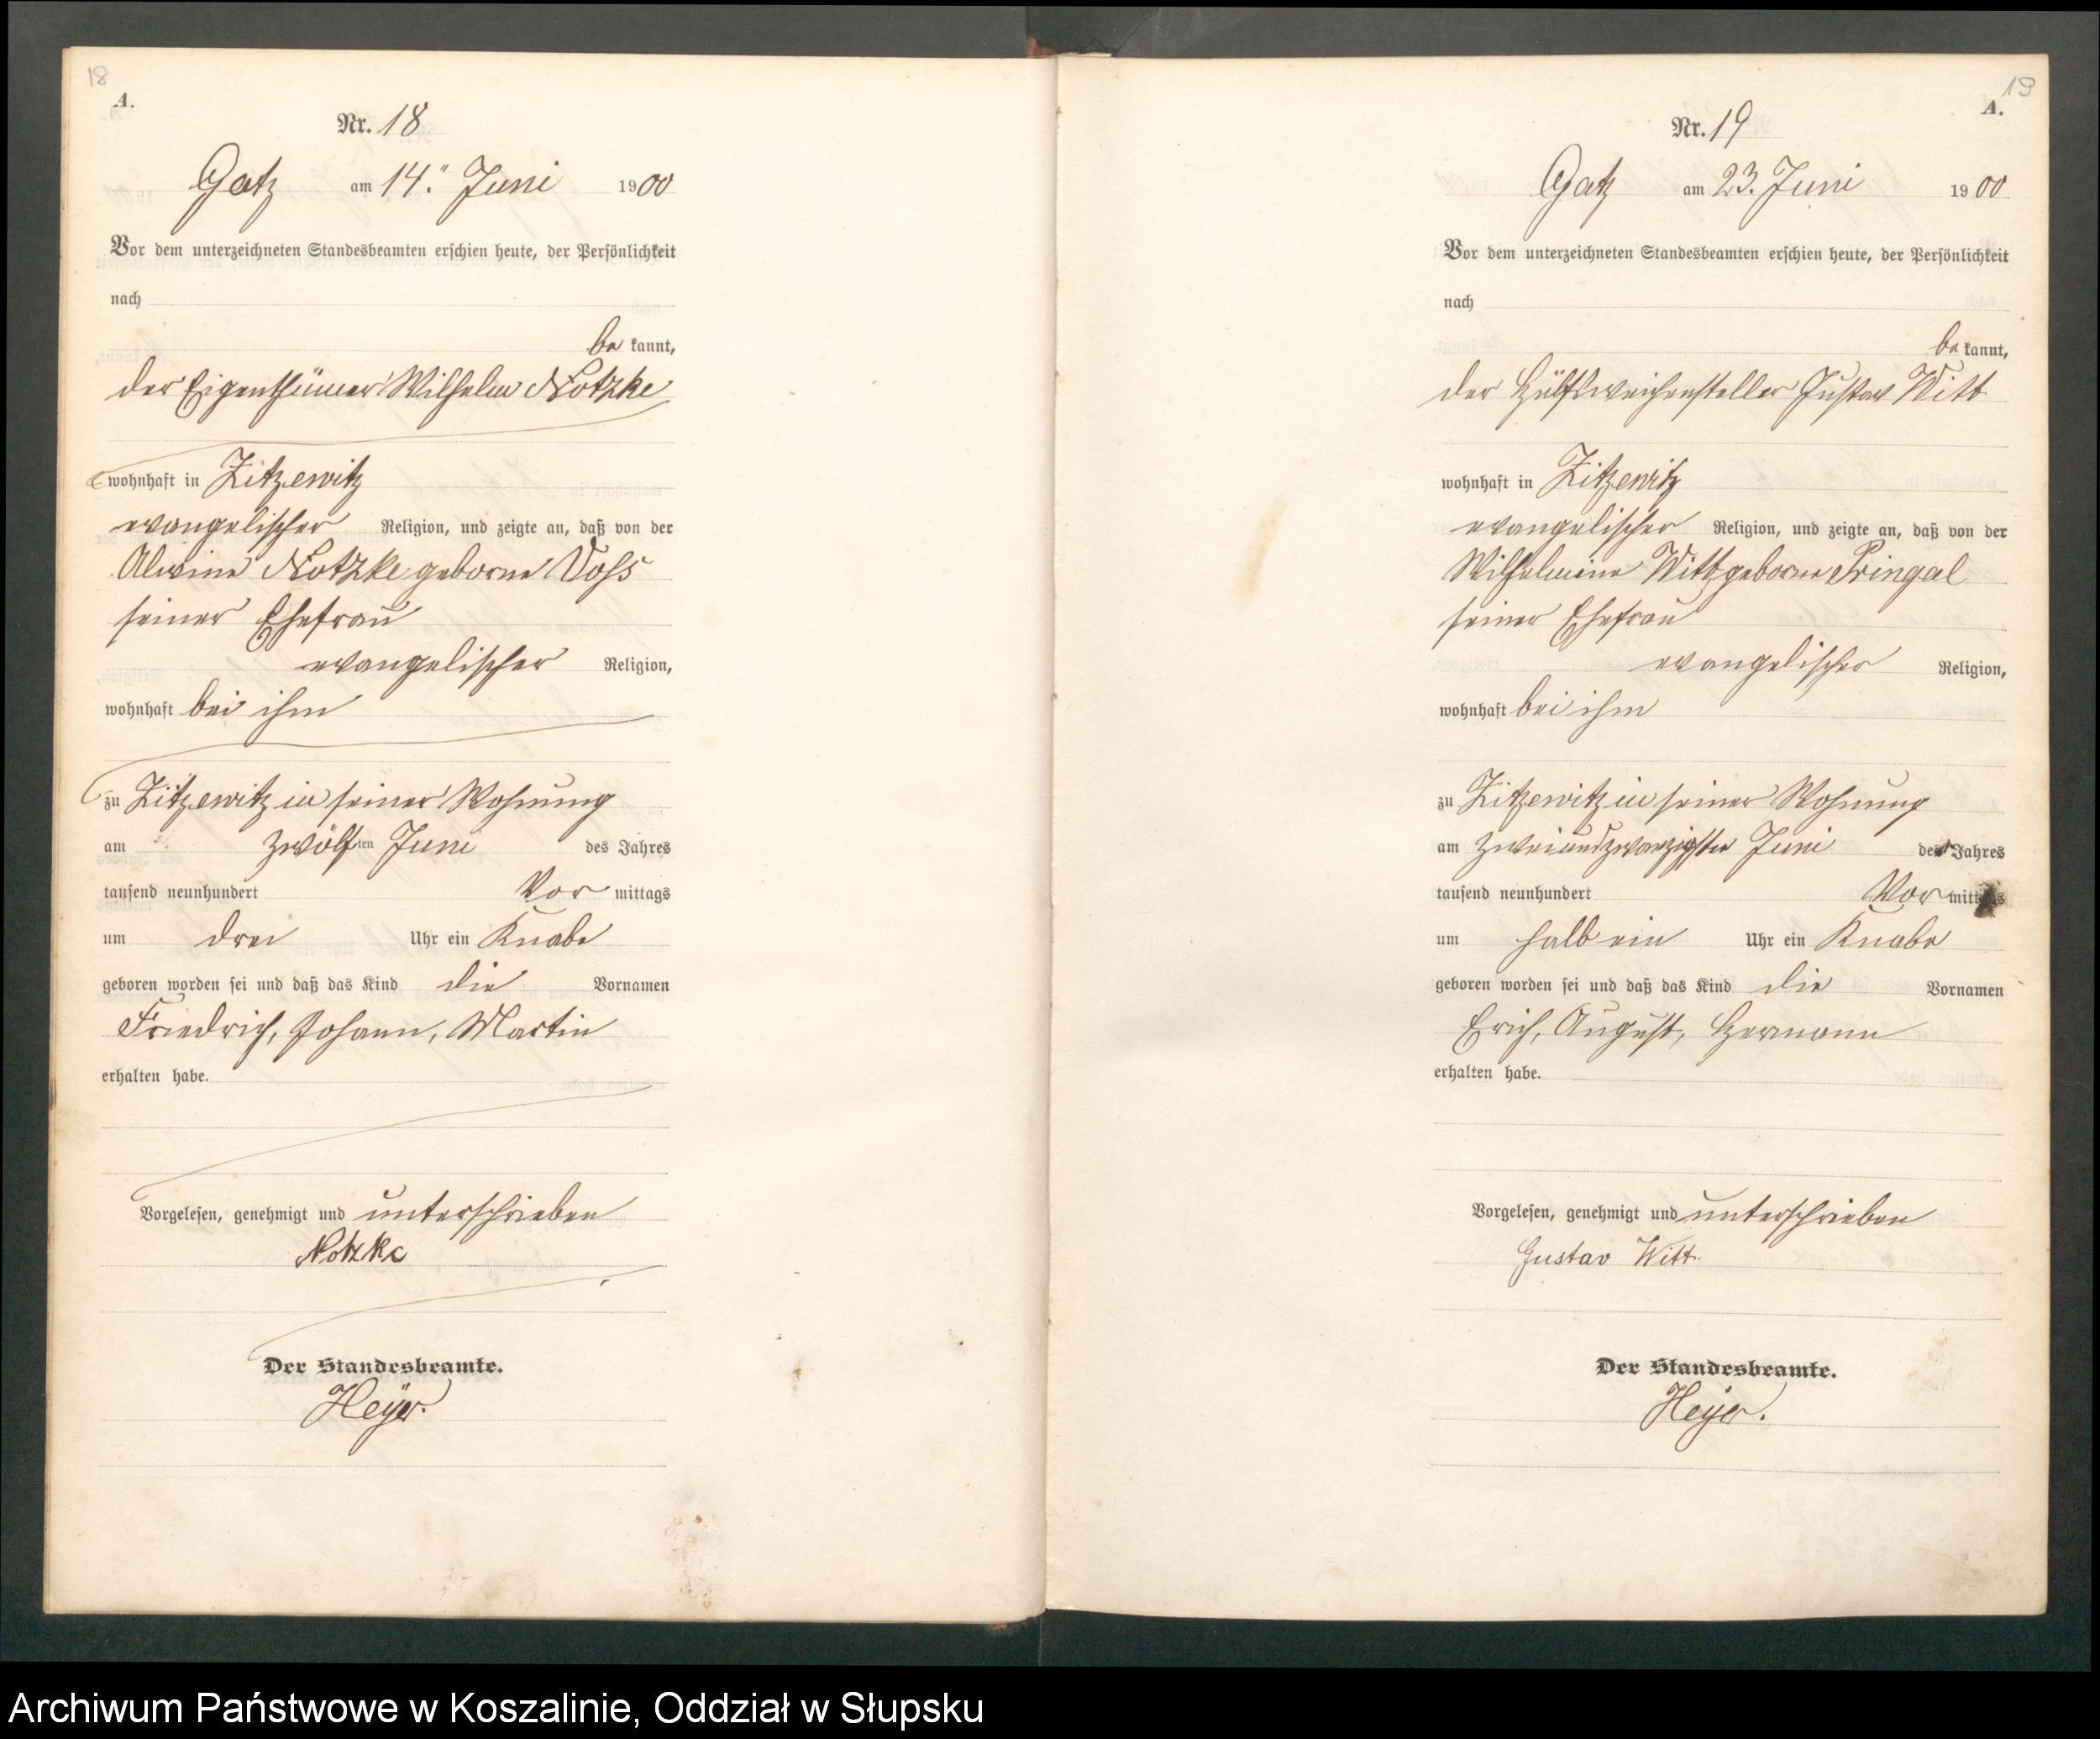 18
A.
Nr. 18
Gatz am 14. Juni 1900
Vor dem unterzeichneten Standesbeamten erschien heute, der Persönlichkeit
nach
be kannt,
der Eigenthümer Wilhelm Notzke
wohnhaft in Zitzewitz
evangelischer Religion, und zeigte an, daß von der
Alwine Notzke geborne Voss
seiner Ehefrau
evangelischer Religion,
wohnhaft bei ihm
zu Zitzewitz in seiner Wohnung
am zwölften Juni des Jahres
tausend neunhundert Vor mittags
um drei Uhr ein Knabe
geboren worden sei und daß das Kind die Vornamen
Friedrich, Johann, Martin
erhalten habe.
Vorgelesen, genehmigt und unterschrieben
Notzke
Der Standesbeamte.
Heyer.
19
A.
Nr. 19
Gatz am 23. Juni 1900
Vor dem unterzeichneten Standesbeamten erschien heute, der Persönlichkeit
nach
be kannt,
der Hülfsweichensteller Gustav Witt
wohnhaft in Zitzewitz
evangelischer Religion, und zeigte an, daß von der
Wilhelmine Witt geborne Pringal
seiner Ehefrau
evangelischer Religion,
wohnhaft bei ihm
zu Zitzewitz in seiner Wohnung
am zweiundzwanzigsten Juni des Jahres
tausend neunhundert Vor mittags
um halb ein Uhr ein Knabe
geboren worden sei und daß das Kind die Vornamen
Erich, August, Hermann
erhalten habe.
Vorgelesen, genehmigt und unterschrieben
Gustav Witt.
Der Standesbeamte.
Heyer.
Archiwum Państwowe w Koszalinie, Oddział w Słupsku